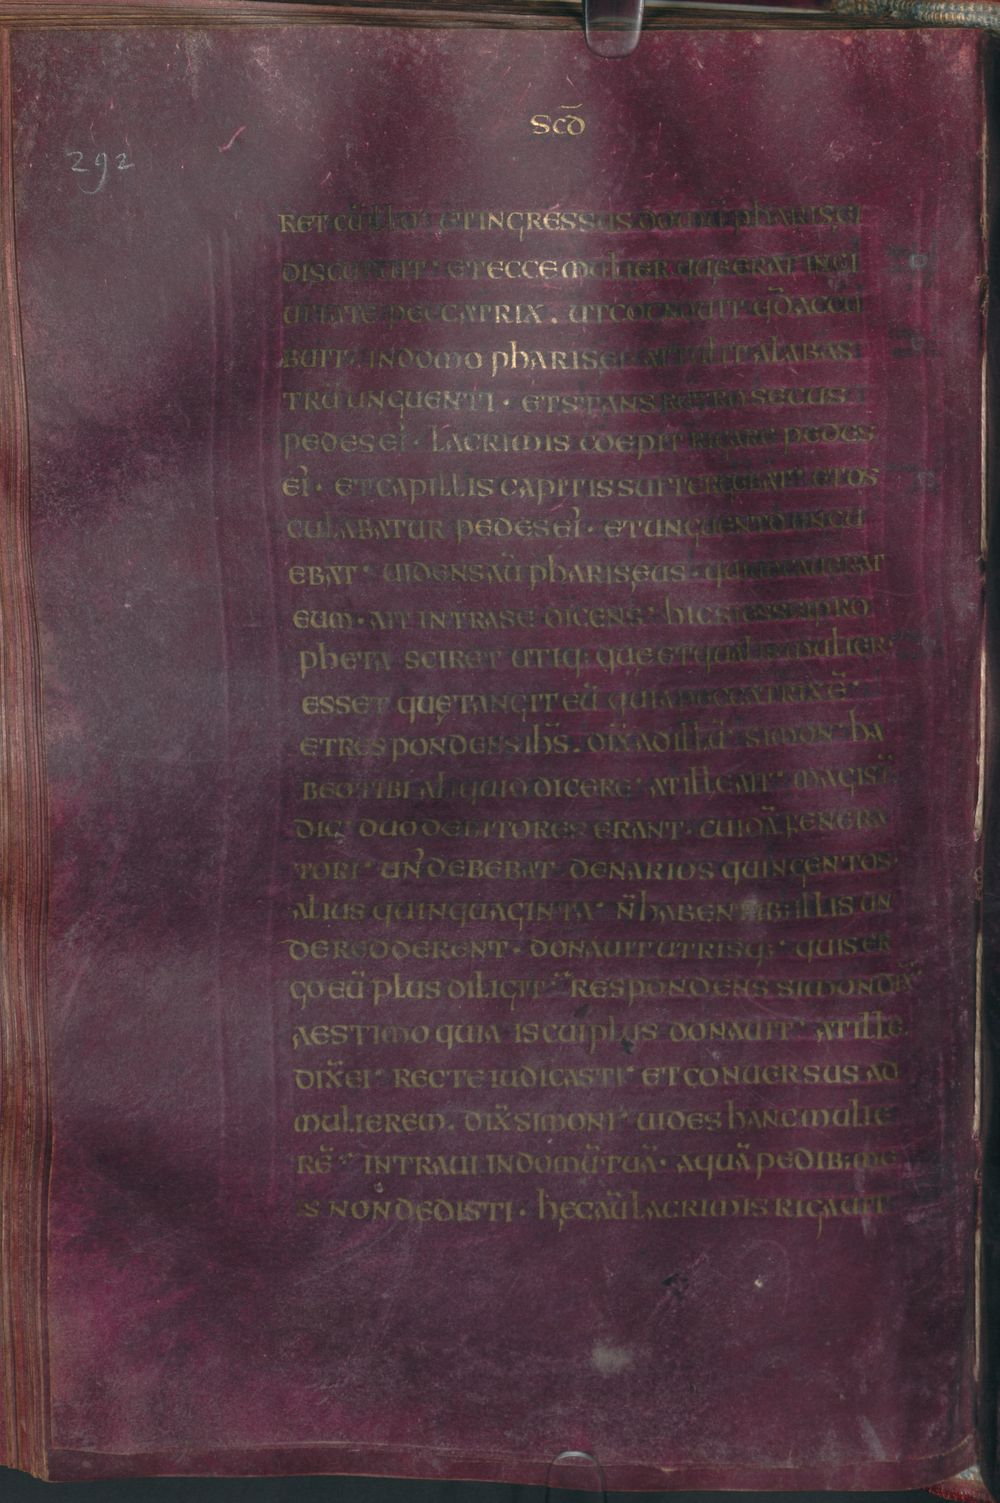 Scd̄
292
RET CŪ ILLO · ET INGRESSUS DOMŪ PHARISEI
DISCUBUIT · ET ECCE MULIER QUE ERAT IN CI
UITATE PECCATRIX . UT COGNOUIT QD̄ ACCU
BUIT IN DOMO PHARISEI ATTULIT ALABAS
TRŪ UNGUENTI · ET STANS RETRO SECUS
PEDES EI' · LACRIMIS COEPIT RIGARE PEDES
EI' · ET CAPILLIS CAPITIS SUI TERGEBAT · ET OS
CULABATUR PEDES EI' · ET UNGUENTO UNGU
EBAT · UIDENS AŪ PHARISĘUS · QUI UOCAUERAT
EUM · AIT INTRA SE DICENS · HIC SI ESSET PRO
PHETA SCIRET UTIQ; QUĘ ET QUALIS MULIER
ESSET QUĘ TANGIT EŪ QUIA PECCATRIX Ē ·
ET RESPONDENS IHS̄ . DIX̄ AD ILLŪ · SIMON · HA
BEO TIBI ALIQUID DICERE · AT ILLE AIT · MAGIST̄
DIC · DUO DEBITORES ERANT · CUIDĀ FENERA
TORI · UN' DEBEBAT DENARIOS QUINGENTOS ·
ALIUS QUINQUAGINTA · N̄ HABENTIB; ILLIS UN
DE REDDERENT · DONAUIT UTRISQ; · QUIS ER
GO EŪ PLUS DILIGIT · RESPONDENS SIMON DIX̄
AESTIMO QUIA IS CUI PLUS DONAUIT · AT ILLE
DIX̄ EI · RECTE IUDICASTI · ET CONUERSUS AD
MULIEREM . DIX̄ SIMONI · UIDES HANC MULIE
RĒ · INTRAUI IN DOMŪ TUĀ · AQUĀ PEDIB; ME
IS NON DEDISTI · HĘC AŪ LACRIMIS RIGAUIT